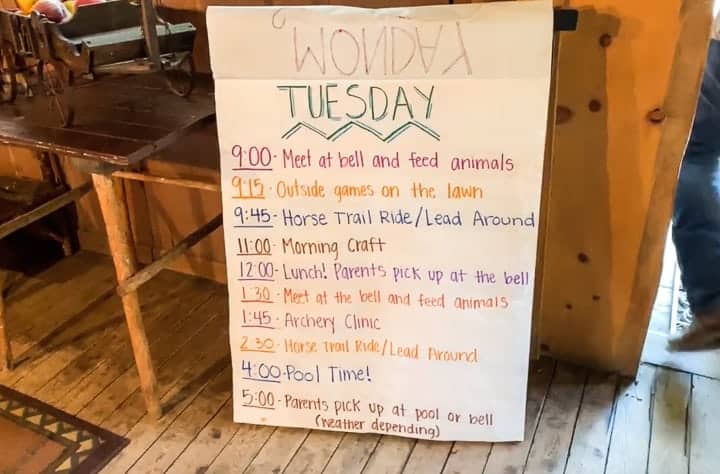 MONDAY
TUESDAY
9:00- Meet at bell and feed animals
9:15- Outside games on the lawn
9:45- Horse Trail Ride/Lead Around
11:00- Morning Craft
12:00- Lunch! Parents pick up at the bell
1:30- Meet at the bell and feed animals
1:45- Archery Clinic
2:30- Horse Trail Ride/Lead Around
4:00-Pool Time!
5:00- Parents pick up at pool or bell
(weather depending)